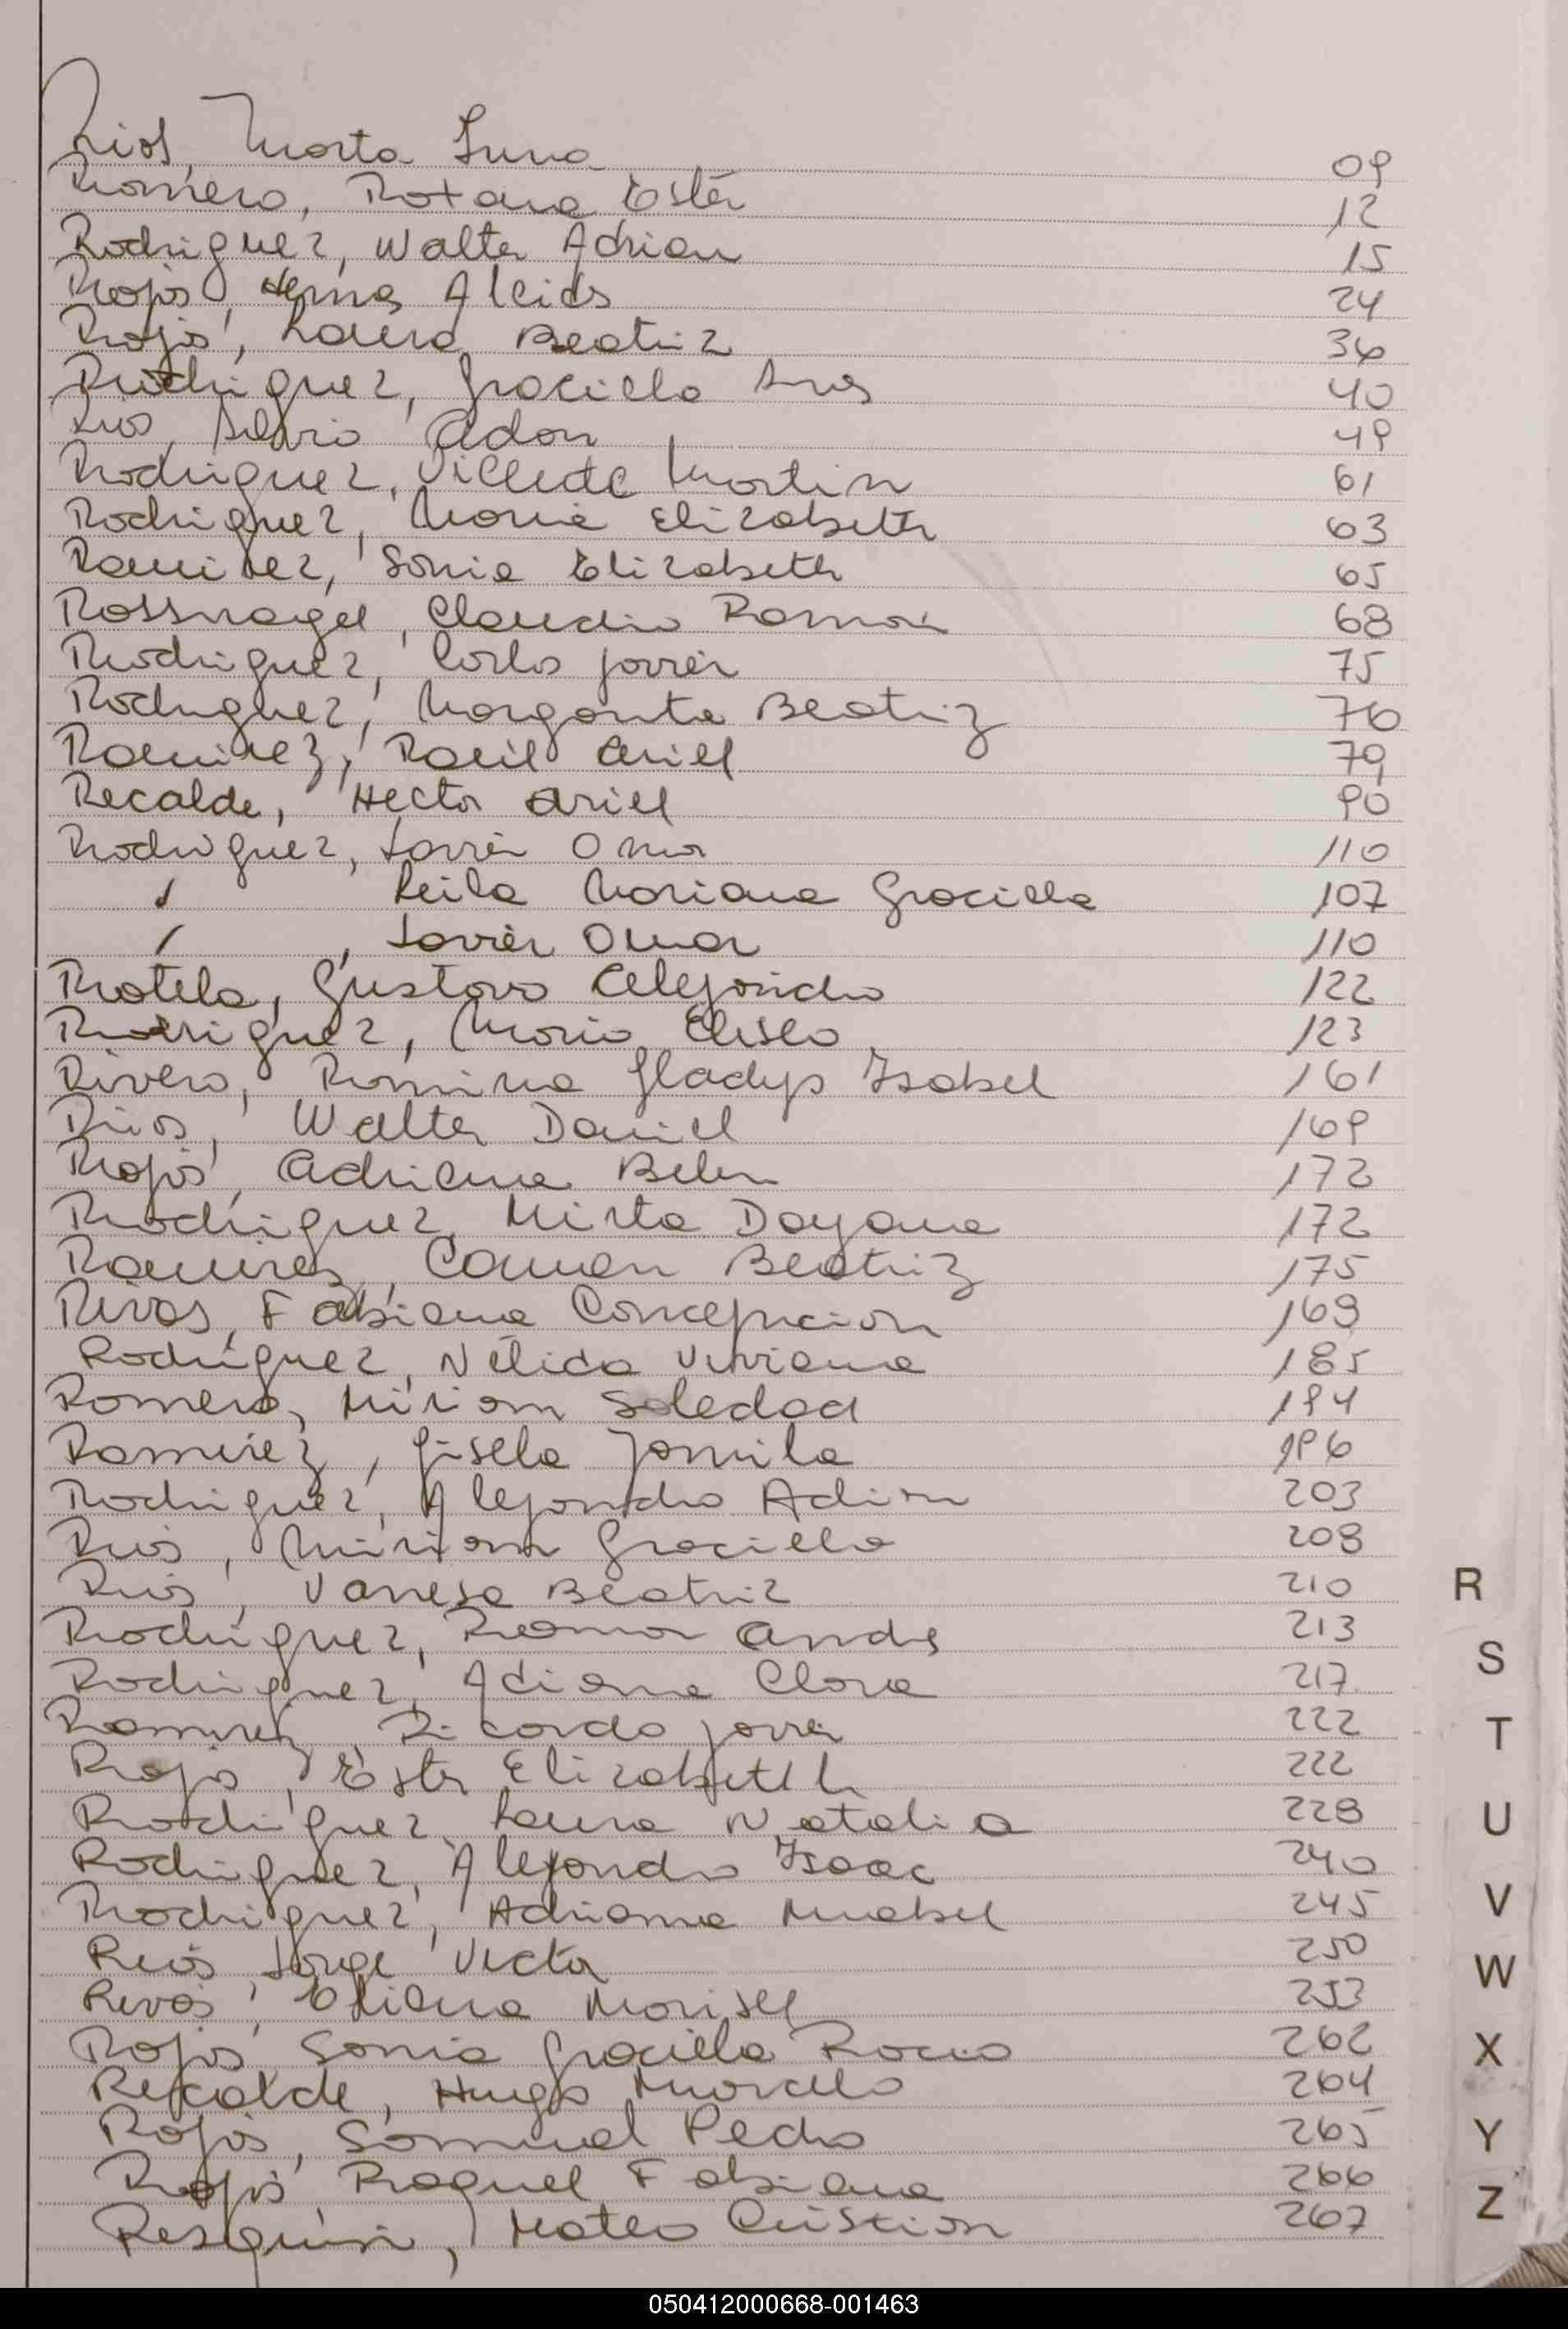 Rios, Marta Luna 09
Romero, Roxana Ester 12
Rodriguez, Walter Adrian 15
Rojas, Alcids 24
Rojas, Laura Beatriz 36
Rodriguez, Graciela Ines 40
Rios, Adan 49
Rodriguez, Martin 61
Rodriguez, Maria Elizabeth 63
Ramirez, Sonia Elizabeth 65
Rossnagel, Claudio Ramon 68
Rodriguez, Carlos Javier 75
Rodriguez, Margarita Beatriz 76
Ramirez, Raul Ariel 79
Recalde, Hector Ariel 90
Rodriguez, Javier Omar 110
Leila Mariana Graciela 107
, Javier Omar 110
Rotela, Gustavo Alejandro 122
Rodriguez, Mario Eliseo 123
Rivero, Romina Gladys Isabel 161
Rios, Walter Daniel 169
Rojas, Adriana Belen 172
Rodriguez, Mirta Dayana 172
Ramirez, Carmen Beatriz 175
Rivas, Fabiana Concepcion 169
Rodriguez, Nélida Viviana 185
Romero, Miriam Soledad 194
Ramirez, Gisela Jamila 196
Rodriguez, Alejandro Adrian 203
Rios, Miriam Graciela 208
Rios, Vanesa Beatriz 210
R
Rodriguez, Ramon Andres 213
S
Rodriguez, Adriana Clara 217
Ramirez, Ricardo Javier 222
T
Rojas, Ester Elizabeth 222
Rodriguez, Laura Natalia 228
U
Rodriguez, Alejandro Isaac 240
Rodriguez, Adriana Mabel 245
V
Rios, Jorge Victor 250
W
Rivas, Marisel 253
Rojas, Sonia Graciela Rocio 262
X
Recalde, Hugo Marcelo 264
Rojas, Samuel Pedro 265
Y
Rojas, Raquel Fabiana 266
Z
Resquin, Mateo Cristian 267
050412000668-001463